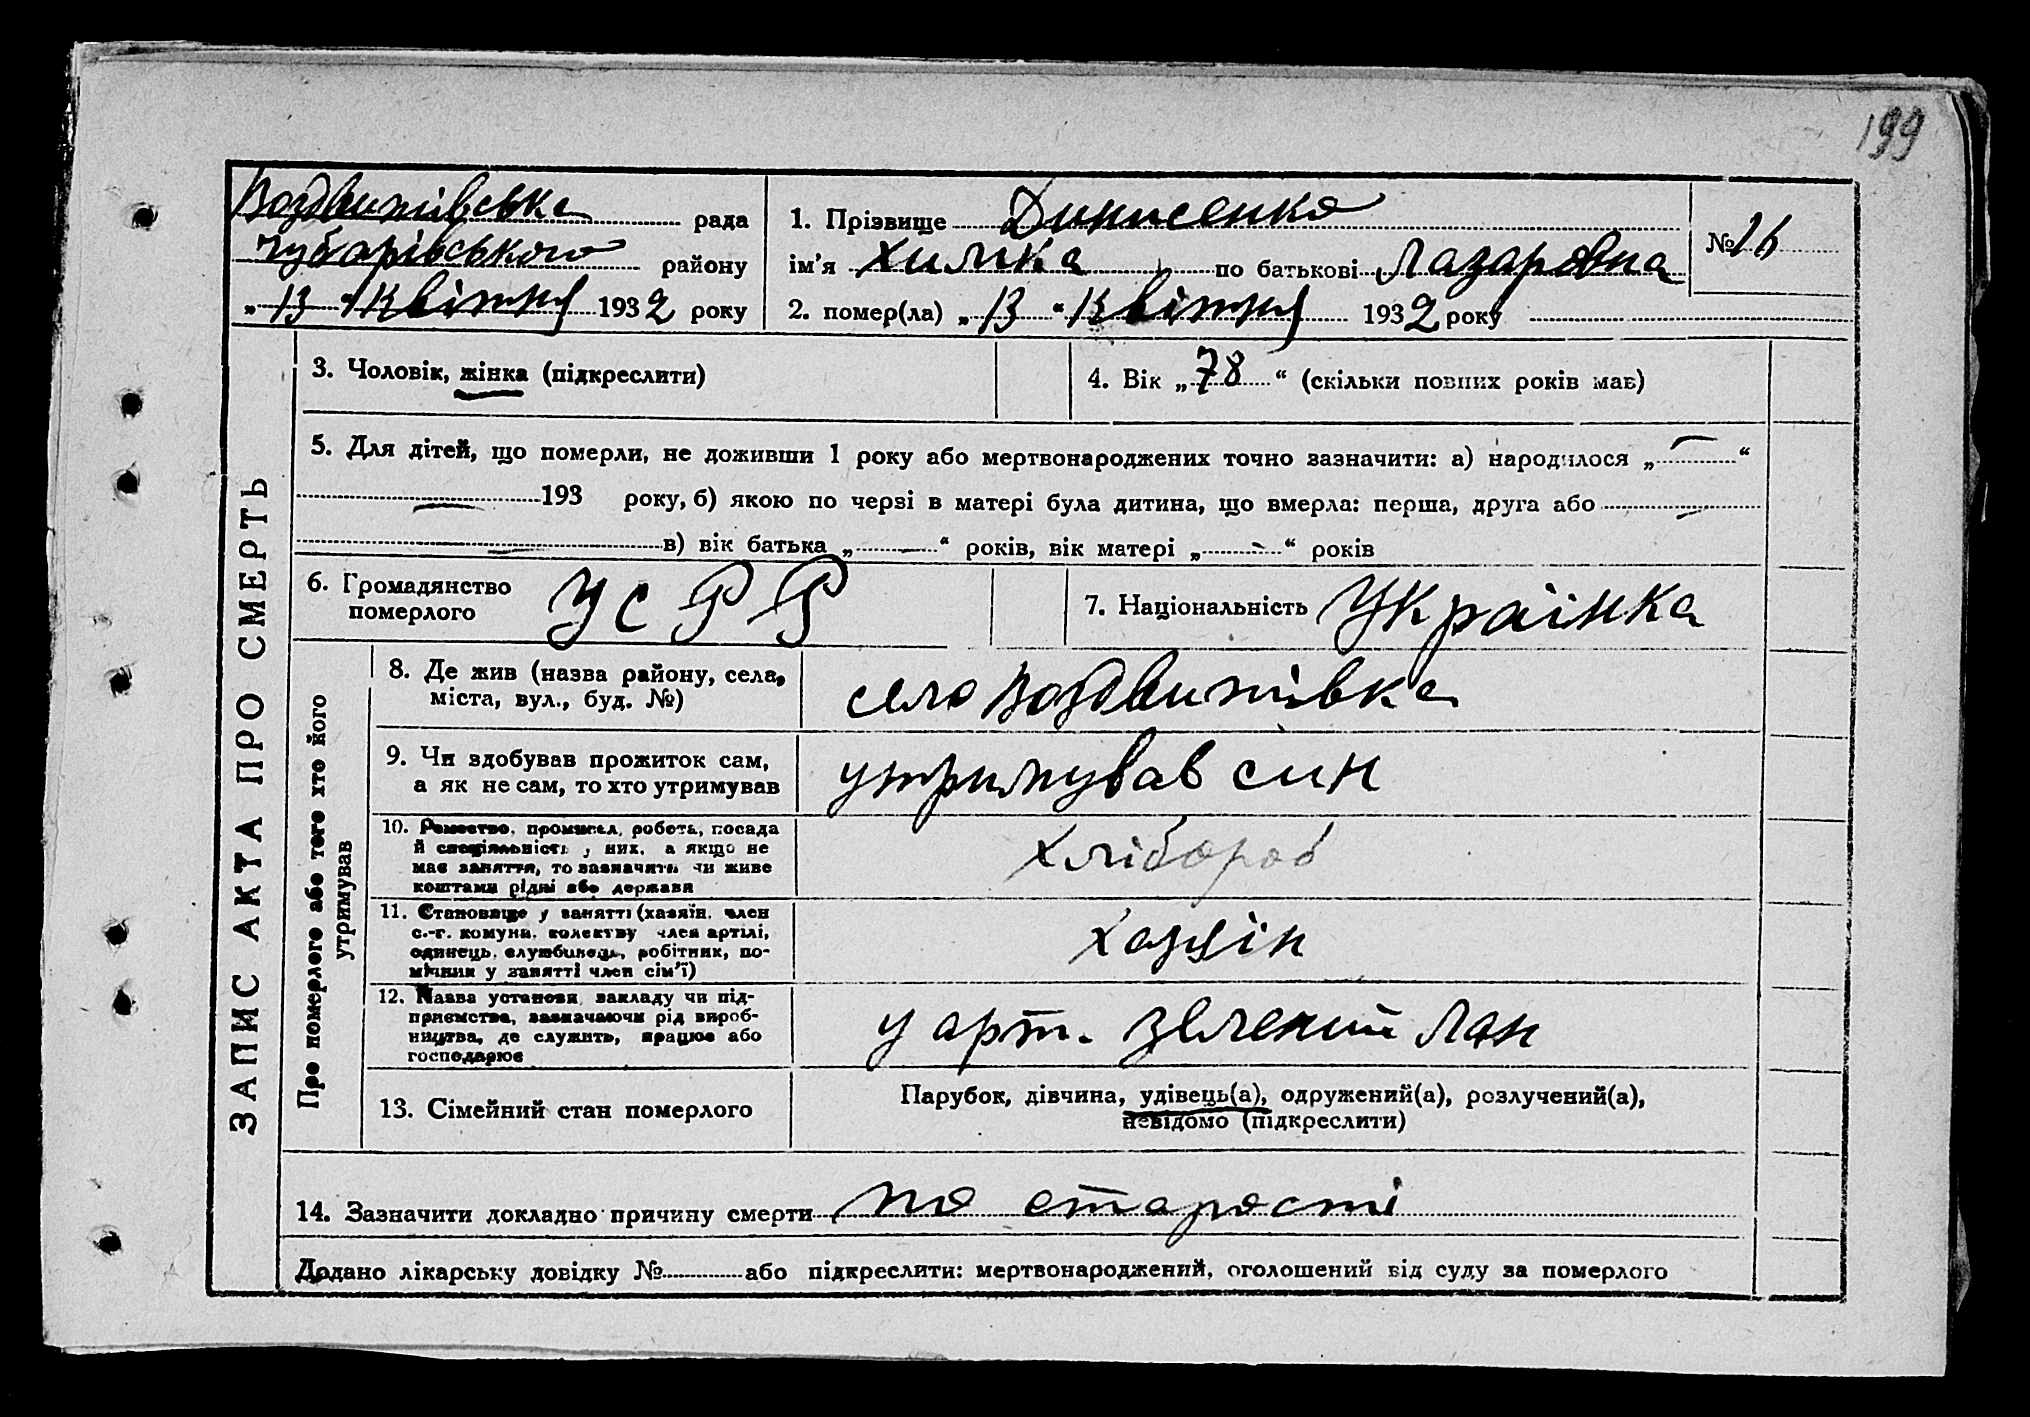 199
Воздвижівська рада
Чубарівського району
„13“ Квітня 1932 року
1. Прізвище Динисенко
ім’я Химка по батькові Лазаровна
2. помер(ла) „13“ Квітня 1932 року
№ 26
ЗАПИС АКТА ПРО СМЕРТЬ
3. Чоловік, жінка (підкреслити)
4. Вік „78“ (скільки повних років має)
5. Для дітей, що померли, не доживши 1 року або мертвонароджених точно зазначити: а) народилося „—“
— 193 року, б) якою по черзі в матері була дитина, що вмерла: перша, друга або —
— в) вік батька „—“ років, вік матері „—“ років
6. Громадянство
померлого
УСРР
7. Національність Українка
Про померлого або того хто його
утримував
8. Де жив (назва району, села,
міста, вул., буд. №)
село Воздвижівка
9. Чи здобував прожиток сам,
а як не сам, то хто утримував
утримував син
10. Ремество, промисел, робота, посада
й спеціяльність у них, а якщо не
має заняття, то зазначити чи живе
коштами рідні або держави
Хлібороб
11. Становище у занятті (хазяїн, член
с.-г. комуни, колективу член артілі,
одинець, службовець, робітник, по-
мічник у занятті член сім’ї)
Хазяін
12. Назва установи, закладу чи під-
приємства, зазначаючи рід вироб-
ництва, де служить, працює або
господарює
у арт. зелений Лан
13. Сімейний стан померлого
Парубок, дівчина, удівець(а), одружений(а), розлучений(а),
невідомо (підкреслити)
14. Зазначити докладно причину смерти по старості
Додано лікарську довідку № або підкреслити: мертвонароджений, оголошений від суду за померлого